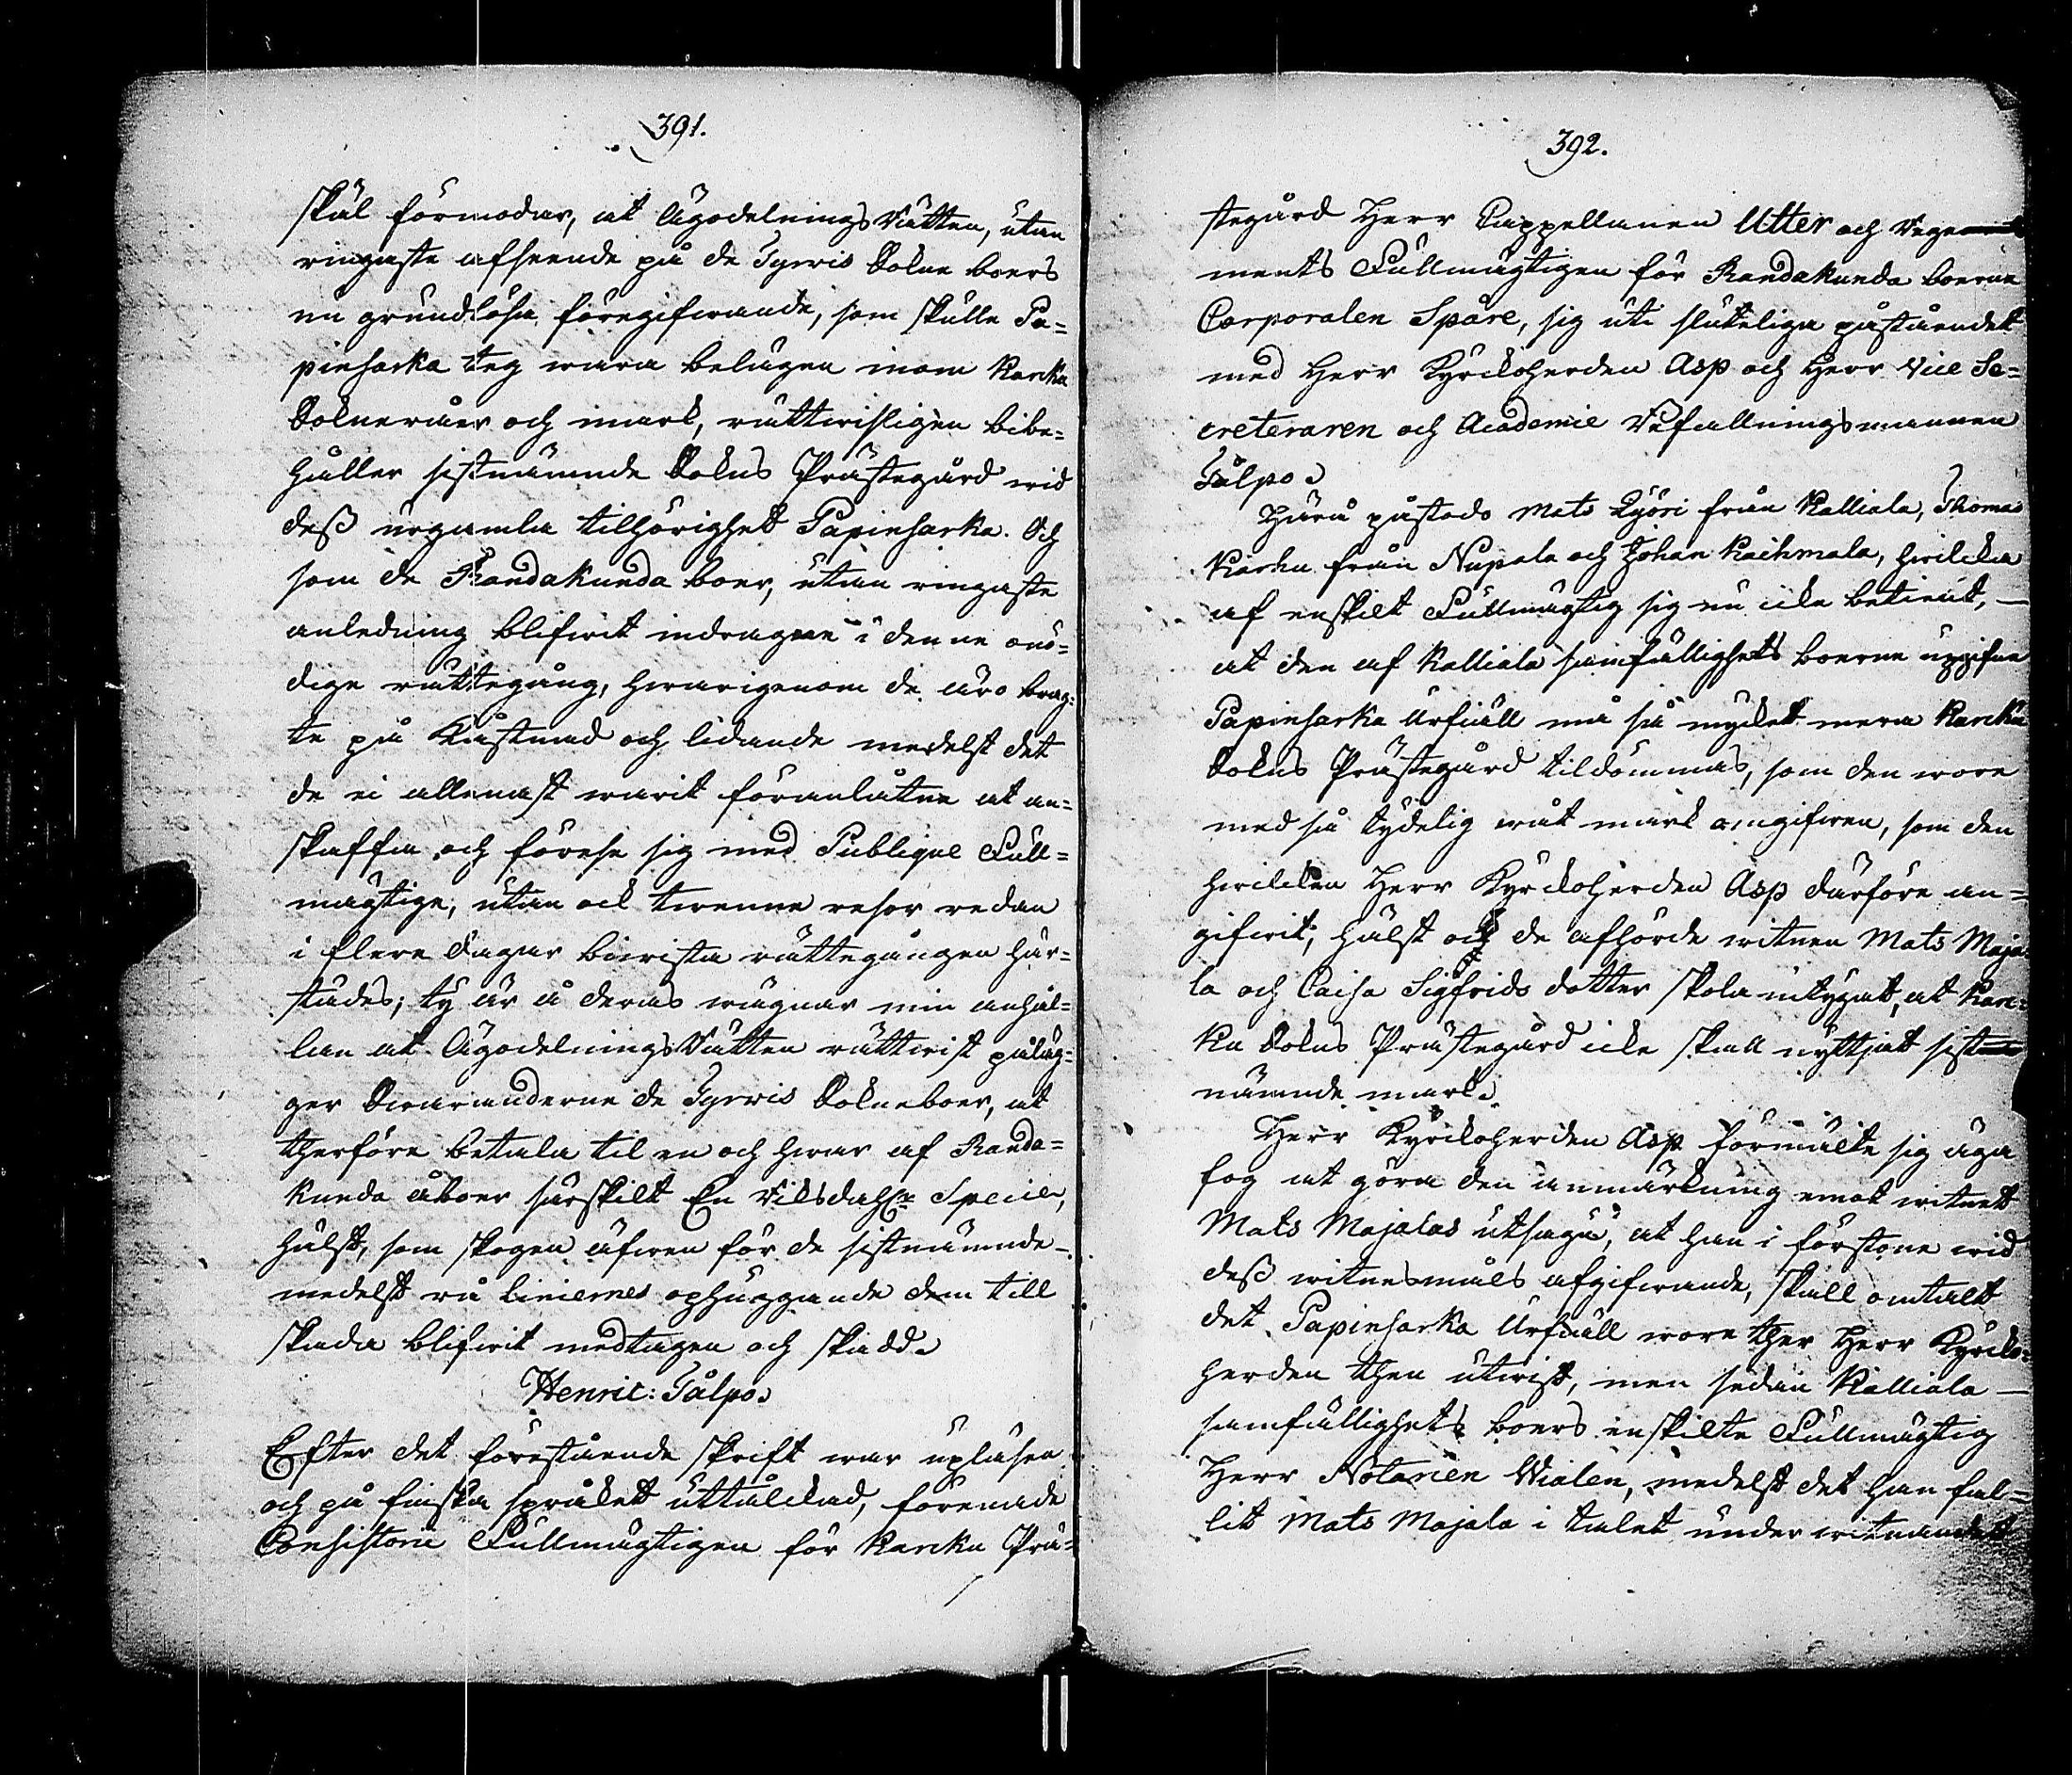 391.
skäl förmodar, at Ägodelnings Rätten, utan
ringaste afseende på de Tyrvis Sokne boers
nu grundlösa föregifwande, som skulle Pa-
pinsarka teg wara belägen inom Karcku
Sokneråer och mark, rättwisligen bibe-
håller sistnämnde Sokns Prästegård wid
dess urgamla tilhörighet Papinsarka. Och
som de Kandakunda boer, utan ringaste
anledning blifwit indragne i denne onö-
dige rättegång, hwarigenom de äro brag-
te på Kåstnad och lidande medelst det
de ei allenast warit föranlåtne at an-
skaffa och förese sig med Publique Full-
mägtige, utan ock twenne resor redan
i flere dagar biwista rättegången här-
städes; ty är å deras wägnar min anhål-
lan at Ägodelnings Rätten rättwist påläg-
ger Swaranderne de Tyrvis Sokneboer, at
therföre betala til en och hwar af Kanda-
kunda åboer särskilt En Riksdahler Specie,
hälst, som skogen äfwen för de sistnämnde
medelst rå Liniernes ophuggande dem till
skada blifwit medtagen och skadd.
Henric: Tålpo.
Efter det förestående skrift war upläsen
och på finska språket uttålckad, förenade
Consistorii Fullmägtigen för Karcku Prä-
392.
stegård Herr Cappellanen Utter och Rege-
ments Fullmägtigen för Kandakunda boerne
Corporalen Spåre, sig uti sluteliga påståendet
med Herr Kyrckoherden Asp och Herr Vice Se-
creteraren och Academie Befallningsmannen
Tålpo.
Härå påstods Mats Kyöri från Kalliala, Thomas
Karhu från Nupala och Johan Kaihmala, hwilcka
af enskilt Fullmägtig sig nu icke betient,
at den af Kalliala samfällighets boerne upgifne
Papinsarka Urfiäll må så mycket mera Karcku
Sokns Prästegård tildömmas, som den wore
med så tydelig wåt mark omgifwen, som den
hwilcken Herr Kyrckoherden Asp därföre an-
gifwit; hälst och de afhörde witnen Mats Maja-
la och Caisa Sigfrids dotter skola intygat, at Karc-
ku Sokns Prästegård icke skall nyttjat sist
nämnde mark.
Herr Kyrckoherden Asp förmälte sig äga
fog at göra den anmärkning emot witnet
Mats Majalas utsago, at han i förstone wid
dess witnesmåls afgifwande, skall omtalt
det Papinsarka Urfiäll wore ther Herr Kyrcko-
herden then utwist, men sedan Kalliala
samfällighets boers enskilte Fullmägtig
Herr Notarien Wialen, medelst det han fal-
lit Mats Majala i talet under witnandet